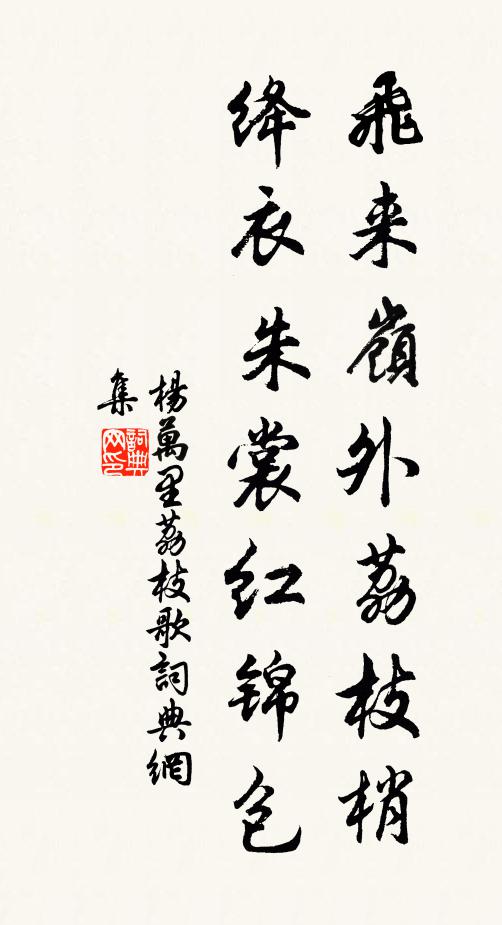 飛来嶺外荔枝梢
絳衣朱裳红锦包
楊萬里荔枝歌詞典網
集
詞典网印